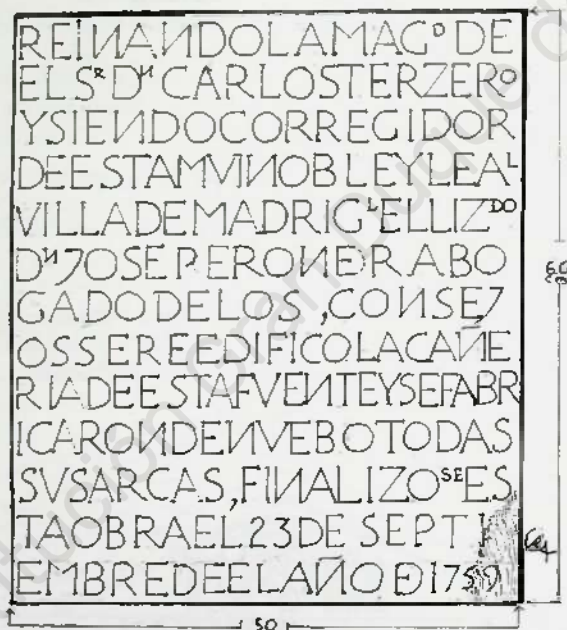 REINANDOLAMAGᴰ DE
ELSᴿ Dᴺ CARLOSTERZERᴼ
YSIENDOCORREGIDOR
DEESTAMVINOBLEYLEAᴸ
VILLADEMADRIGᴸELLIZᴰᴼ
DᴺJOSEPERONERABO
GADODELOS,CONSEJ
OSSEREEDIFICOLACAÑE
RIADEESTAFVENTEYSEFABR
ICARONDENVEBOTODAS
SVSARCAS,FINALIZOˢᴱES
TAOBRAEL23DE SEPTI
EMBREDEELAÑO Đ1759
60
50